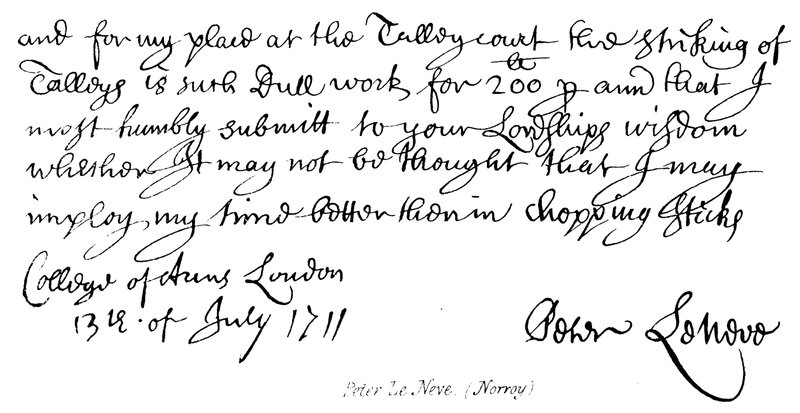 and for my place at the Talley court the striking of
Talleys is such Dull work for 200 li p ann that I
most humbly submitt to your Lordships wisdom
whether It may not be thought that I may
imploy my time better then in chopping sticks
College of Arms London
13th. of July 1711
Peter Le Neve
Peter Le Neve. (Norroy)